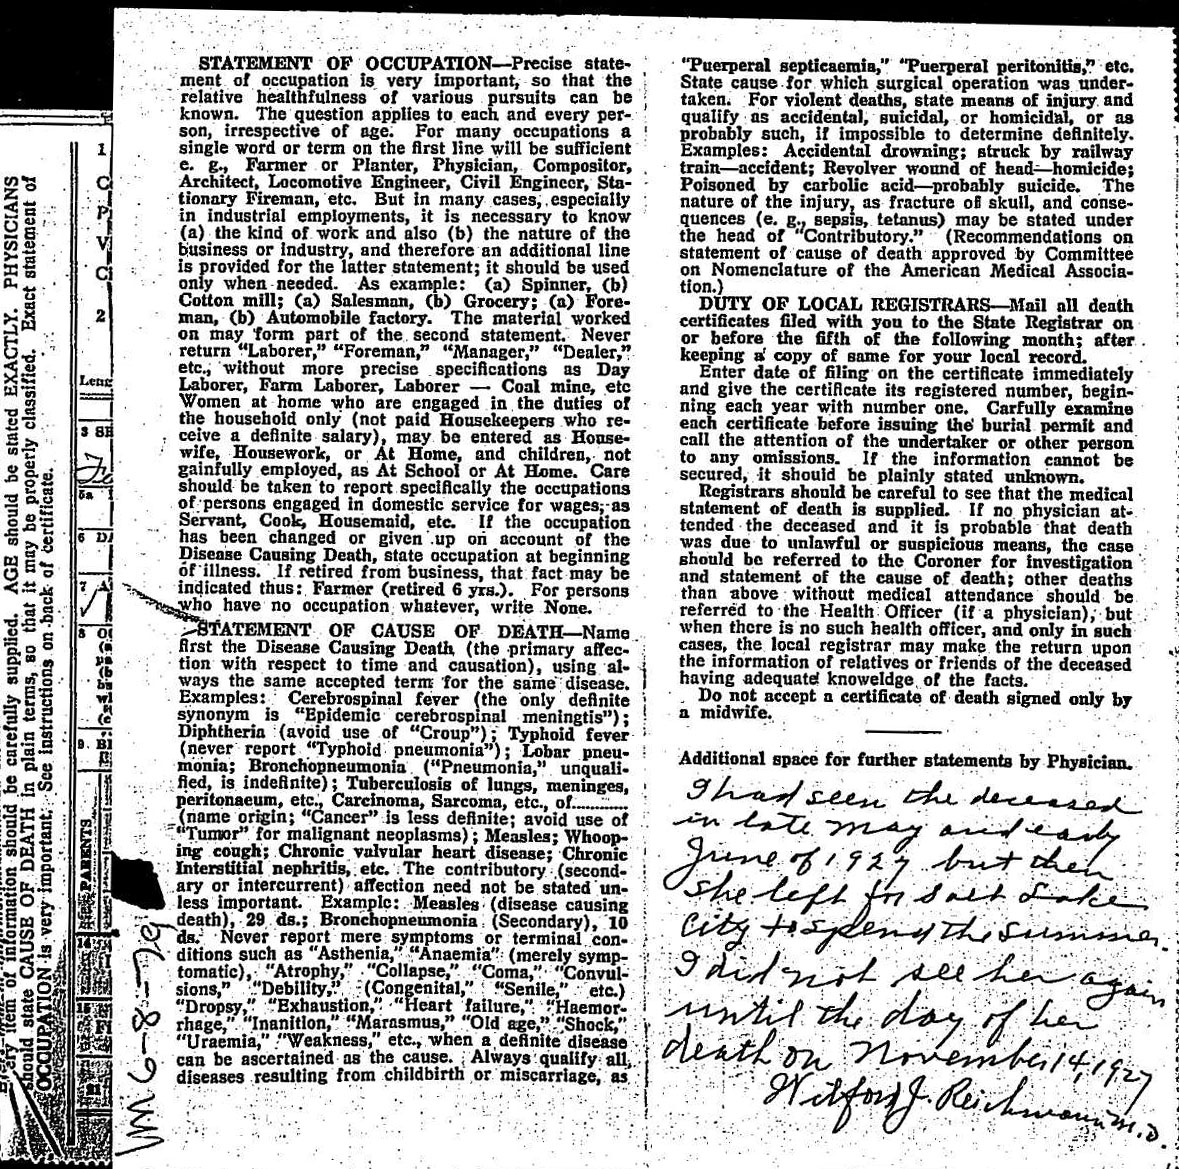 STATEMENT OF OCCUPATION—Precise state-
ment of occupation is very important, so that the
relative healthfulness of various pursuits can be
known. The question applies to each and every per-
son, irrespective of age. For many occupations a
single word or term on the first line will be sufficient
e. g., Farmer or Planter, Physician, Compositor,
Architect, Locomotive Engineer, Civil Engineer, Sta-
tionary Fireman, etc. But in many cases, especially
in industrial employments, it is necessary to know
(a) the kind of work and also (b) the nature of the
business or industry, and therefore an additional line
is provided for the latter statement; it should be used
only when needed. As example: (a) Spinner, (b)
Cotton mill; (a) Salesman, (b) Grocery; (a) Fore-
man, (b) Automobile factory. The material worked
on may form part of the second statement. Never
return "Laborer," "Foreman," "Manager," "Dealer,"
etc., without more precise specifications as Day
Laborer, Farm Laborer, Laborer — Coal mine, etc
Women at home who are engaged in the duties of
the household only (not paid Housekeepers who re-
ceive a definite salary), may be entered as House-
wife, Housework, or At Home, and children, not
gainfully employed, as At School or At Home. Care
should be taken to report specifically the occupations
of persons engaged in domestic service for wages, as
Servant, Cook, Housemaid, etc. If the occupation
has been changed or given up on account of the
Disease Causing Death, state occupation at beginning
of illness. If retired from business, that fact may be
indicated thus: Farmer (retired 6 yrs.). For persons
who have no occupation whatever, write None.
STATEMENT OF CAUSE OF DEATH—Name
first the Disease Causing Death (the primary affec-
tion with respect to time and causation), using al-
ways the same accepted term for the same disease.
Examples: Cerebrospinal fever (the only definite
synonym is "Epidemic cerebrospinal meningtis");
Diphtheria (avoid use of "Croup"); Typhoid fever
(never report "Typhoid pneumonia"); Lobar pneu-
monia; Bronchopneumonia ("Pneumonia," unquali-
fied, is indefinite); Tuberculosis of lungs, meninges,
peritonaeum, etc., Carcinoma, Sarcoma, etc., of............
(name origin; "Cancer" is less definite; avoid use of
"Tumor" for malignant neoplasms); Measles; Whoop-
ing cough; Chronic valvular heart disease; Chronic
Interstitial nephritis, etc. The contributory (second-
ary or intercurrent) affection need not be stated un-
less important. Example: Measles (disease causing
death), 29 ds.; Bronchopneumonia (Secondary), 10
ds. Never report mere symptoms or terminal con-
ditions such as "Asthenia," "Anaemia" (merely symp-
tomatic), "Atrophy," "Collapse," "Coma," "Convul-
sions," "Debility," (Congenital," "Senile," etc.)
"Dropsy," "Exhaustion," "Heart failure," "Haemor-
rhage," "Inanition," "Marasmus," "Old age," "Shock,"
"Uraemia," "Weakness," etc., when a definite disease
can be ascertained as the cause. Always qualify all
diseases resulting from childbirth or miscarriage, as
"Puerperal septicaemia," "Puerperal peritonitis," etc.
State cause for which surgical operation was under-
taken. For violent deaths, state means of injury and
qualify as accidental, suicidal, or homicidal, or as
probably such, if impossible to determine definitely.
Examples: Accidental drowning; struck by railway
train—accident; Revolver wound of head—homicide;
Poisoned by carbolic acid—probably suicide. The
nature of the injury, as fracture of skull, and conse-
quences (e. g., sepsis, tetanus) may be stated under
the head of "Contributory." (Recommendations on
statement of cause of death approved by Committee
on Nomenclature of the American Medical Associa-
tion.)
DUTY OF LOCAL REGISTRARS—Mail all death
certificates filed with you to the State Registrar on
or before the fifth of the following month; after
keeping a copy of same for your local record.
Enter date of filing on the certificate immediately
and give the certificate its registered number, begin-
ning each year with number one. Carfully examine
each certificate before issuing the burial permit and
call the attention of the undertaker or other person
to any omissions. If the information cannot be
secured, it should be plainly stated unknown.
Registrars should be careful to see that the medical
statement of death is supplied. If no physician at-
tended the deceased and it is probable that death
was due to unlawful or suspicious means, the case
should be referred to the Coroner for investigation
and statement of the cause of death; other deaths
than above without medical attendance should be
referred to the Health Officer (if a physician), but
when there is no such health officer, and only in such
cases, the local registrar may make the return upon
the information of relatives or friends of the deceased
having adequate knoweldge of the facts.
Do not accept a certificate of death signed only by
a midwife.
Additional space for further statements by Physician.
I had seen the deceased
in late May and early
June of 1927 but then
she left for Salt Lake
City to spend the summer.
I did not see her again
until the day of her
death on November 14, 1927
Wilford J. Reichmann M.D.
item of information should be carefully supplied. AGE should be stated EXACTLY. PHYSICIANS
should state CAUSE OF DEATH in plain terms, so that it may be properly classified. Exact statement of
OCCUPATION is very important. See instructions on back of certificate.
1
2
PARENTS